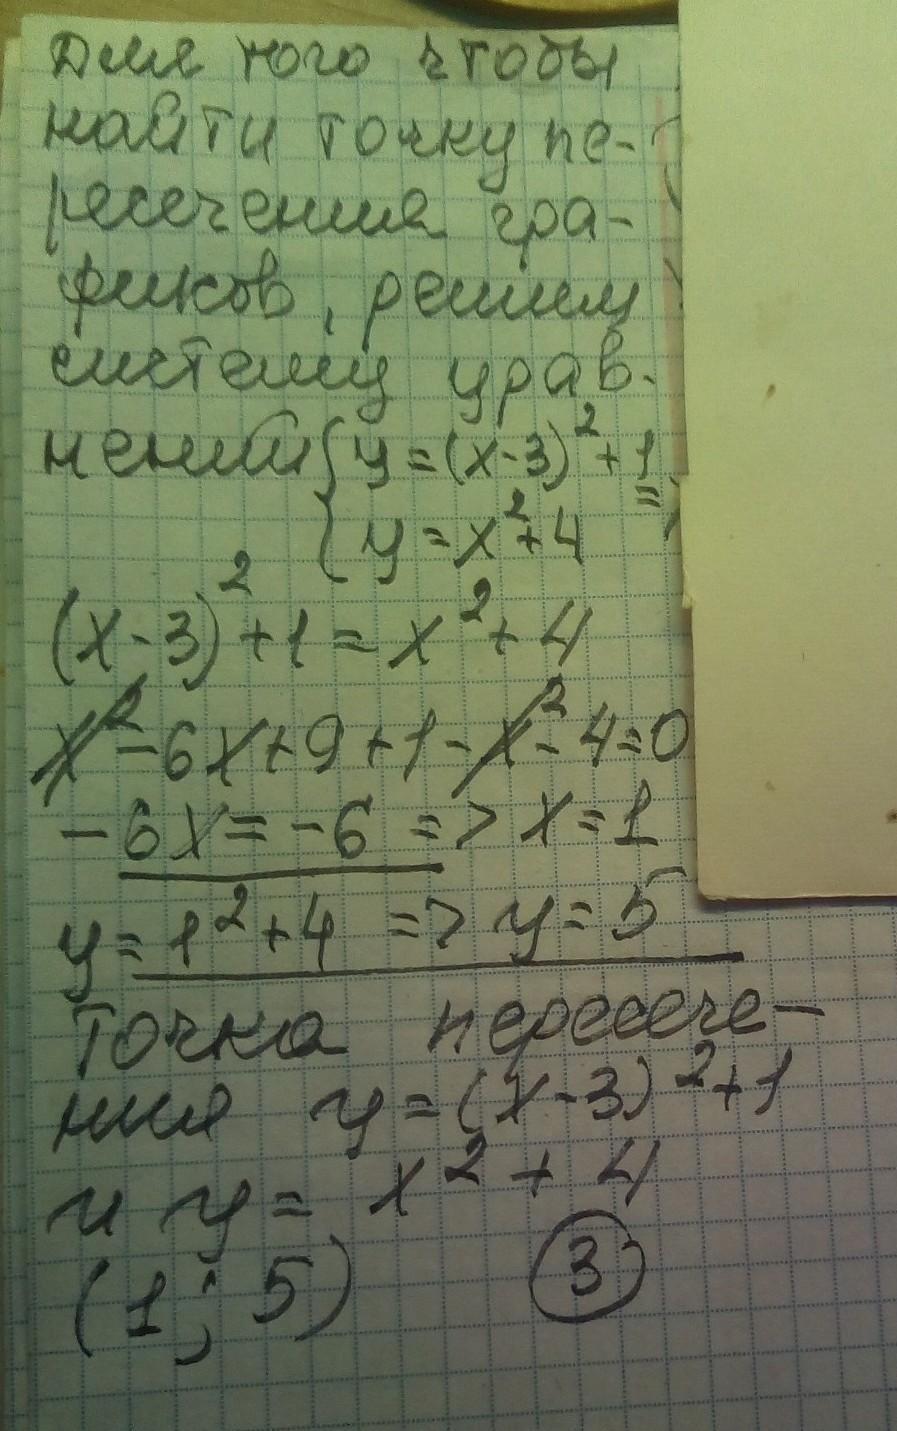 Для того чтобы
найти точку пе-
ресечения гра-
фиков, решим
систему урав-
нений { y=(x-3)²+1
{ y=x²+4 =>
(x-3)²+1=x²+4
x²-6x+9+1-x²-4=0
-6x=-6 => x=1
y=1²+4 => y=5
Точка пересече-
ния y=(x-3)²+1
и y= x²+4
(1; 5) 3